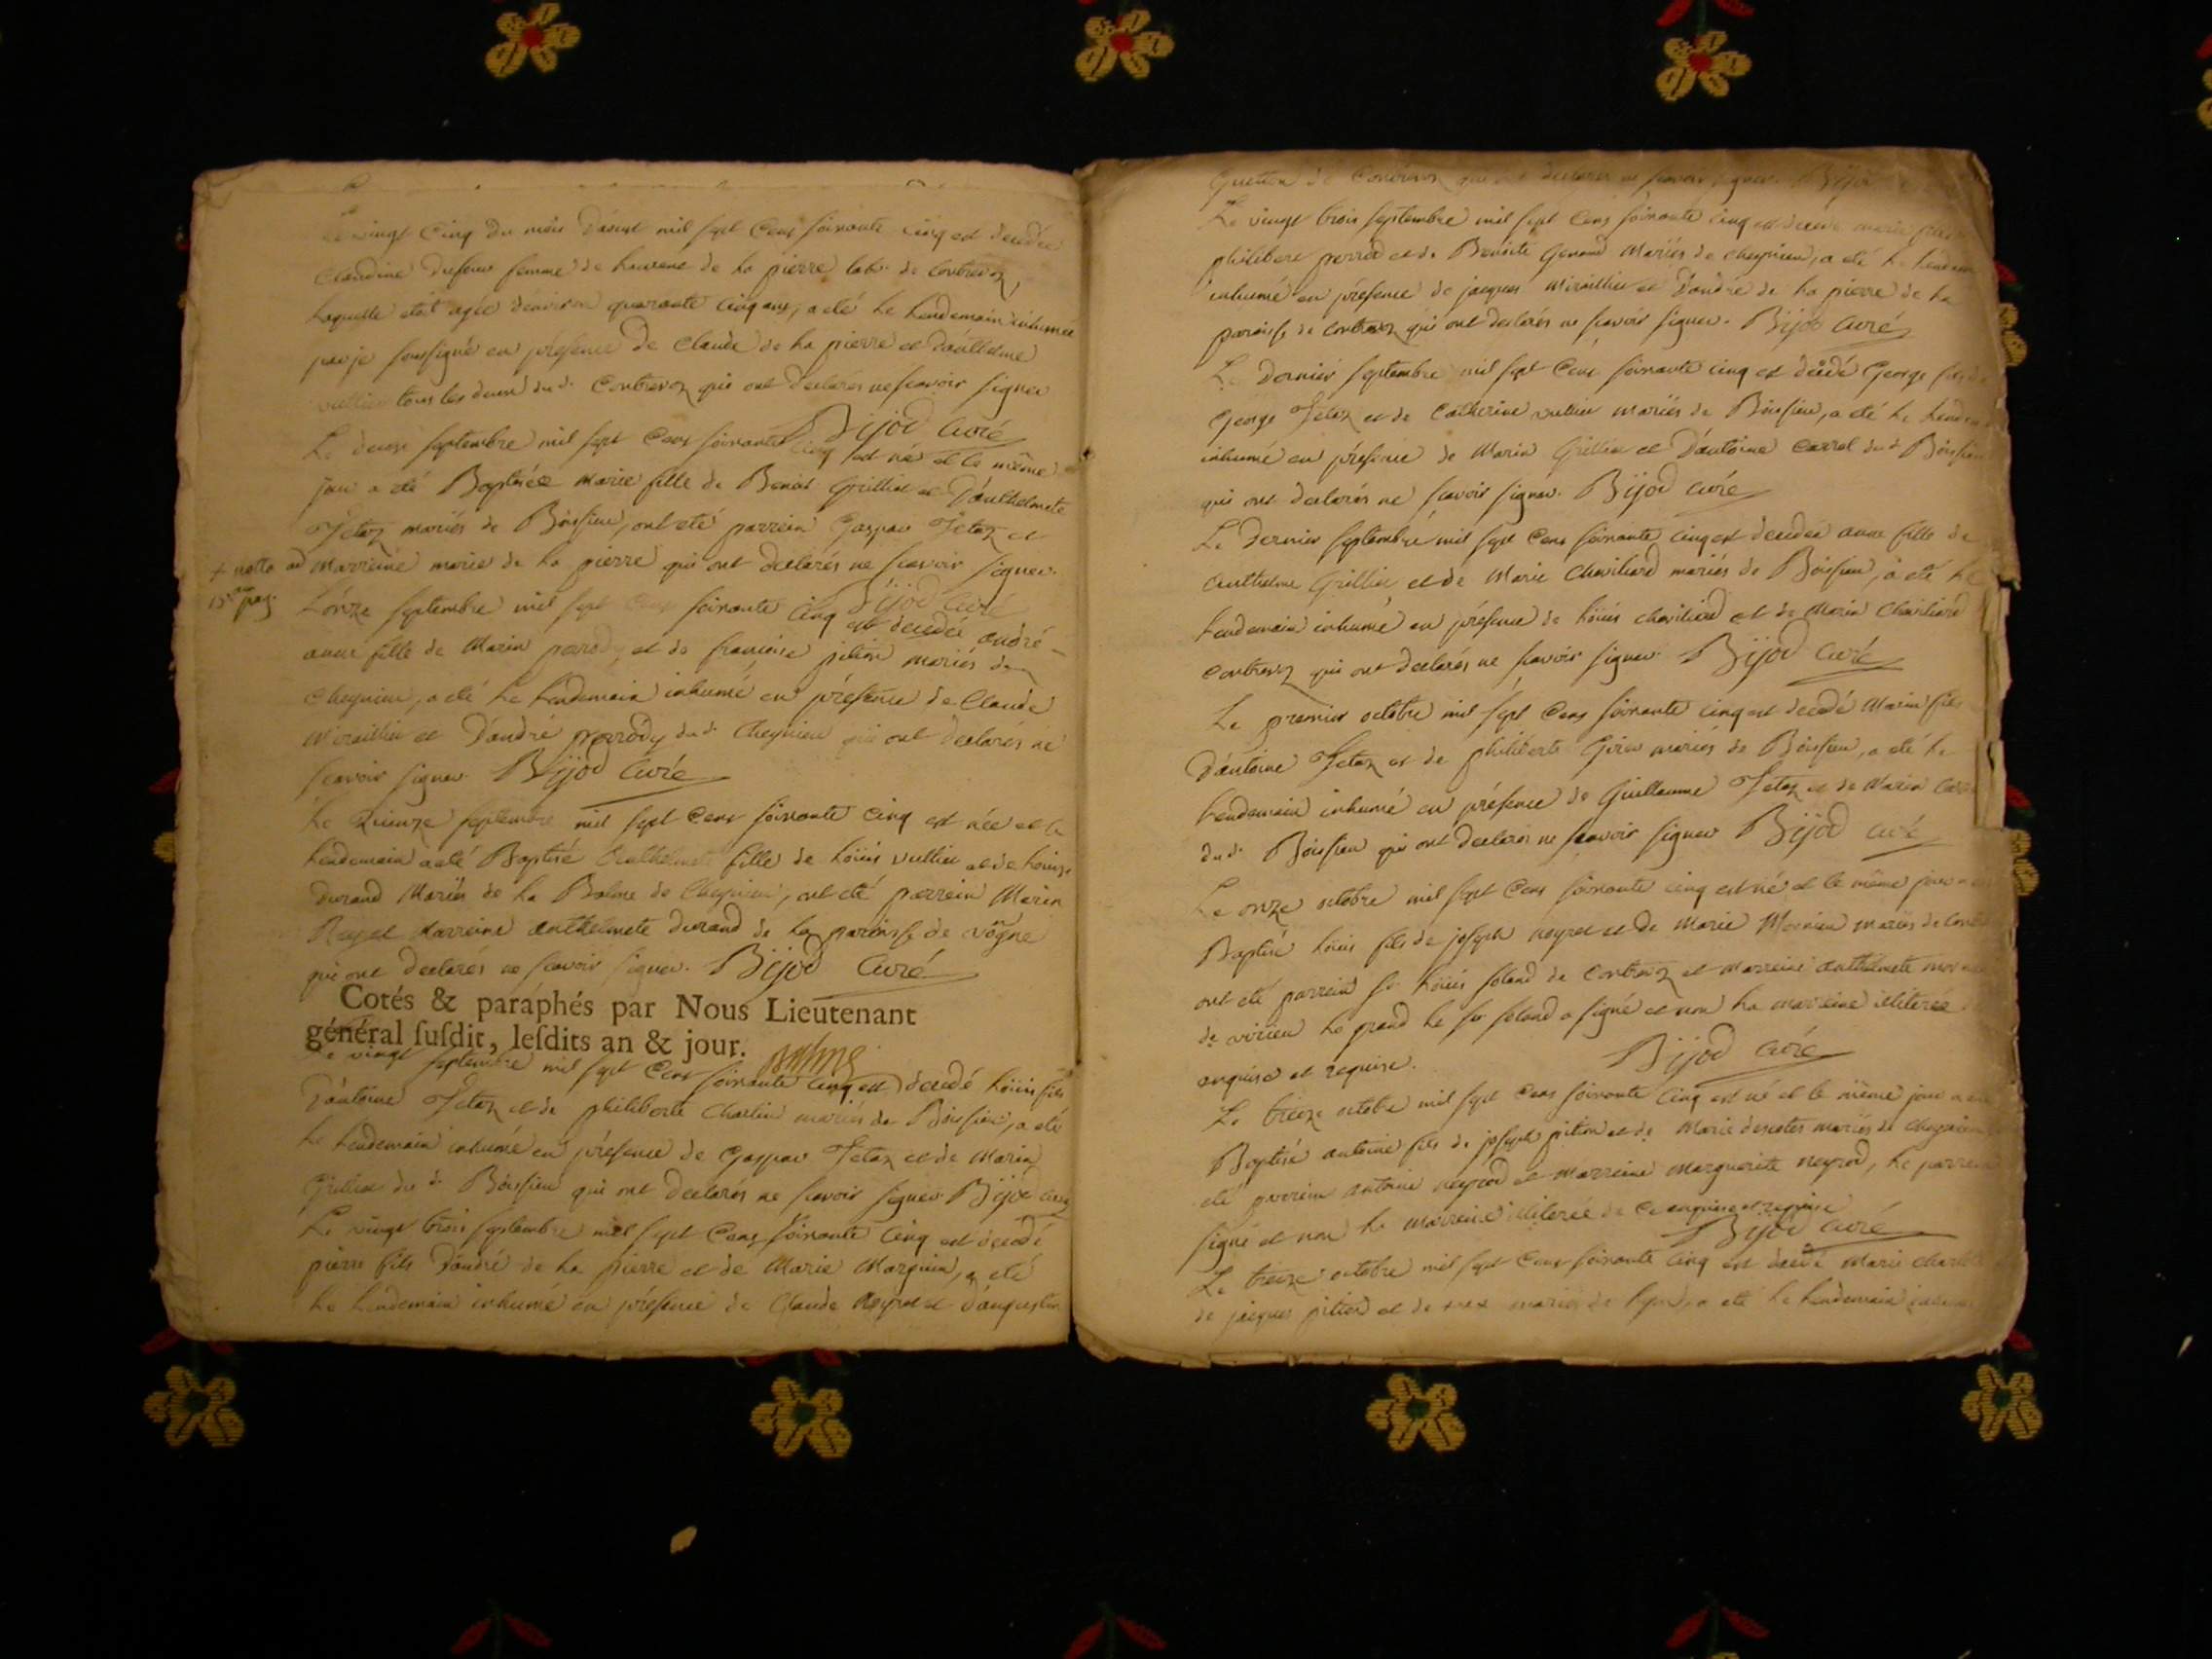 vingt Cinq du mois d'aoust mil sept Cens soixante cinq est decedée
Claudine femme de Laurent de La pierre lab.r de Contrevoz,
Laquelle etoit agée d'environ quarante cinq ans, a eté Le Lendemain inhumée
par je soussigné en présence de Claude de La pierre et d'anthelme
vullier tous les deux dud.t Contrevoz qui ont declarés ne scavoir signer
Bijod Curé
Le deux septembre mil sept Cens soixante cinq est né et le même
jour a eté Baptisée Marie fille de Benoit Grillier et D'anthelmete
Jetaz mariés de Boissieu, ont eté parrein Gaspar Jetaz et
Marreine marie de La pierre qui ont declarés ne scavoir signer.
Bijod Curé
L'onze septembre mil sept Cens soixante Cinq est decedée andré-
anne fille de Marin parody, et de françoise pition mariés de
Cheynieu, a eté Le Lendemain inhumé en présence de Claude
Miraillier et D'andré parrody dud.t Cheynieu qui ont declarés ne
scavoir signer. Bijod Curé
Le Quinze septembre mil sept Cens soixante Cinq est née et le
Lendemain a eté Baptisé anthelmete fille de Loüis vullier et de Loüise
Durand Mariés de La Balme de Cheynieu, ont eté parrein Marin
Rey et Marreine anthelmete durand de La paroisse de vôgne
qui ont declarés ne scavoir signer. Bijod Curé
Cotés & paraphés par Nous Lieutenant
général ſuſdit, leſdits an & jour.
Le vingt septembre mil sept Cens soixante cinq est decedé Loüis fils
D'antoine Jetaz et de philiberte Charlin mariés de Boissieu, a eté
Le Lendemain inhumé en présence de Gaspar Jetaz et de Marin
Grillier du d.t Boissieu qui ont declarés ne scavoir signer Bijod Curé
Le vingt trois septembre mil sept Cens soixante Cinq est decedé
pierre fils D'andré de La pierre et de Marie Marguin, a eté
Le Lendemain inhumé en présence de Claude Neyret et d'augustin
de Contrevoz qui ont declarés ne scavoir signer. Bijod
Le vingt trois septembre mil sept Cens soixante cinq est decedé
philibert perrod et de Benoite Genand Mariés de cheynieu, a eté Le Lendemain
inhumé en présence de jacques Miraillier et D'andré de La pierre de La
paroisse de Contrevoz qui ont declarés ne scavoir signer. Bijod Curé
Le Dernier septembre mil sept Cens soixante cinq est décédé George fils de
George Jetaz et de Catherine vullier mariés de Boissieu, a eté Le Lendemain
inhumé en présence de Marin Grillier et D'antoine Carrel dud.t Boissieu
qui ont declarés ne scavoir signer. Bijod Curé
Le Dernier septembre mil sept Cens soixante cinq est decedée anne fille de
anthelme Grillier et de Marie Chavillard mariés de Boissieu, a eté Le
Lendemain inhumé en présence de Loüis chavilliard et de Marin Chavilliard
Contrevoz qui ont declarés ne scavoir signer. Bijod Curé
Le premier octobre mil sept Cens soixante cinq est decedé Marin fils
D'antoine Jetaz et de philiberte mariés de Boissieu, a eté Le
Lendemain inhumé en présence de Guillaume Jetaz et de Marin
dud.t Boissieu qui ont declarés ne scavoir signer Bijod Curé
Le onze octobre mil sept Cens soixante cinq est né et le même jour a
Baptisé Loüis fils de joseph neyret et de Marie mariés de
ont eté parrein s.r Loüis foland de Contrevoz et Marreine anthelmete
de virieu Le grand Le s.r foland a signé et non La marreine illiterée
enquise et requise. Bijod Curé
Le treize octobre mil sept Cens soixante Cinq est né et le même jour a
Baptisé antoine fils de joseph pition et de Marie descotes mariés de Cheynieu
eté parrein antoine neyrod et Marreine Marguerite neyrod, Le parrein
signé et non La Marreine illiterée de Ce enquise et requise
Bijod Curé
Le treize octobre mil sept Cens soixante Cinq est decedé Marie
de jacques pition et de mariés de a eté Le Lendemain